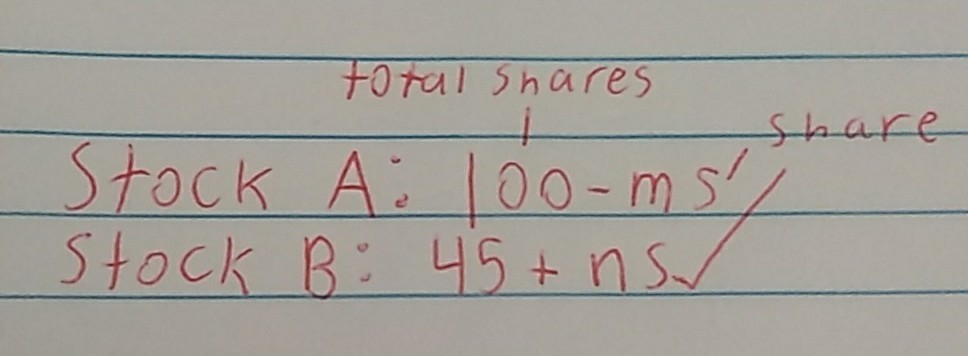 total shares
share
Stock A: 100-ms
Stock B: 45 + ns